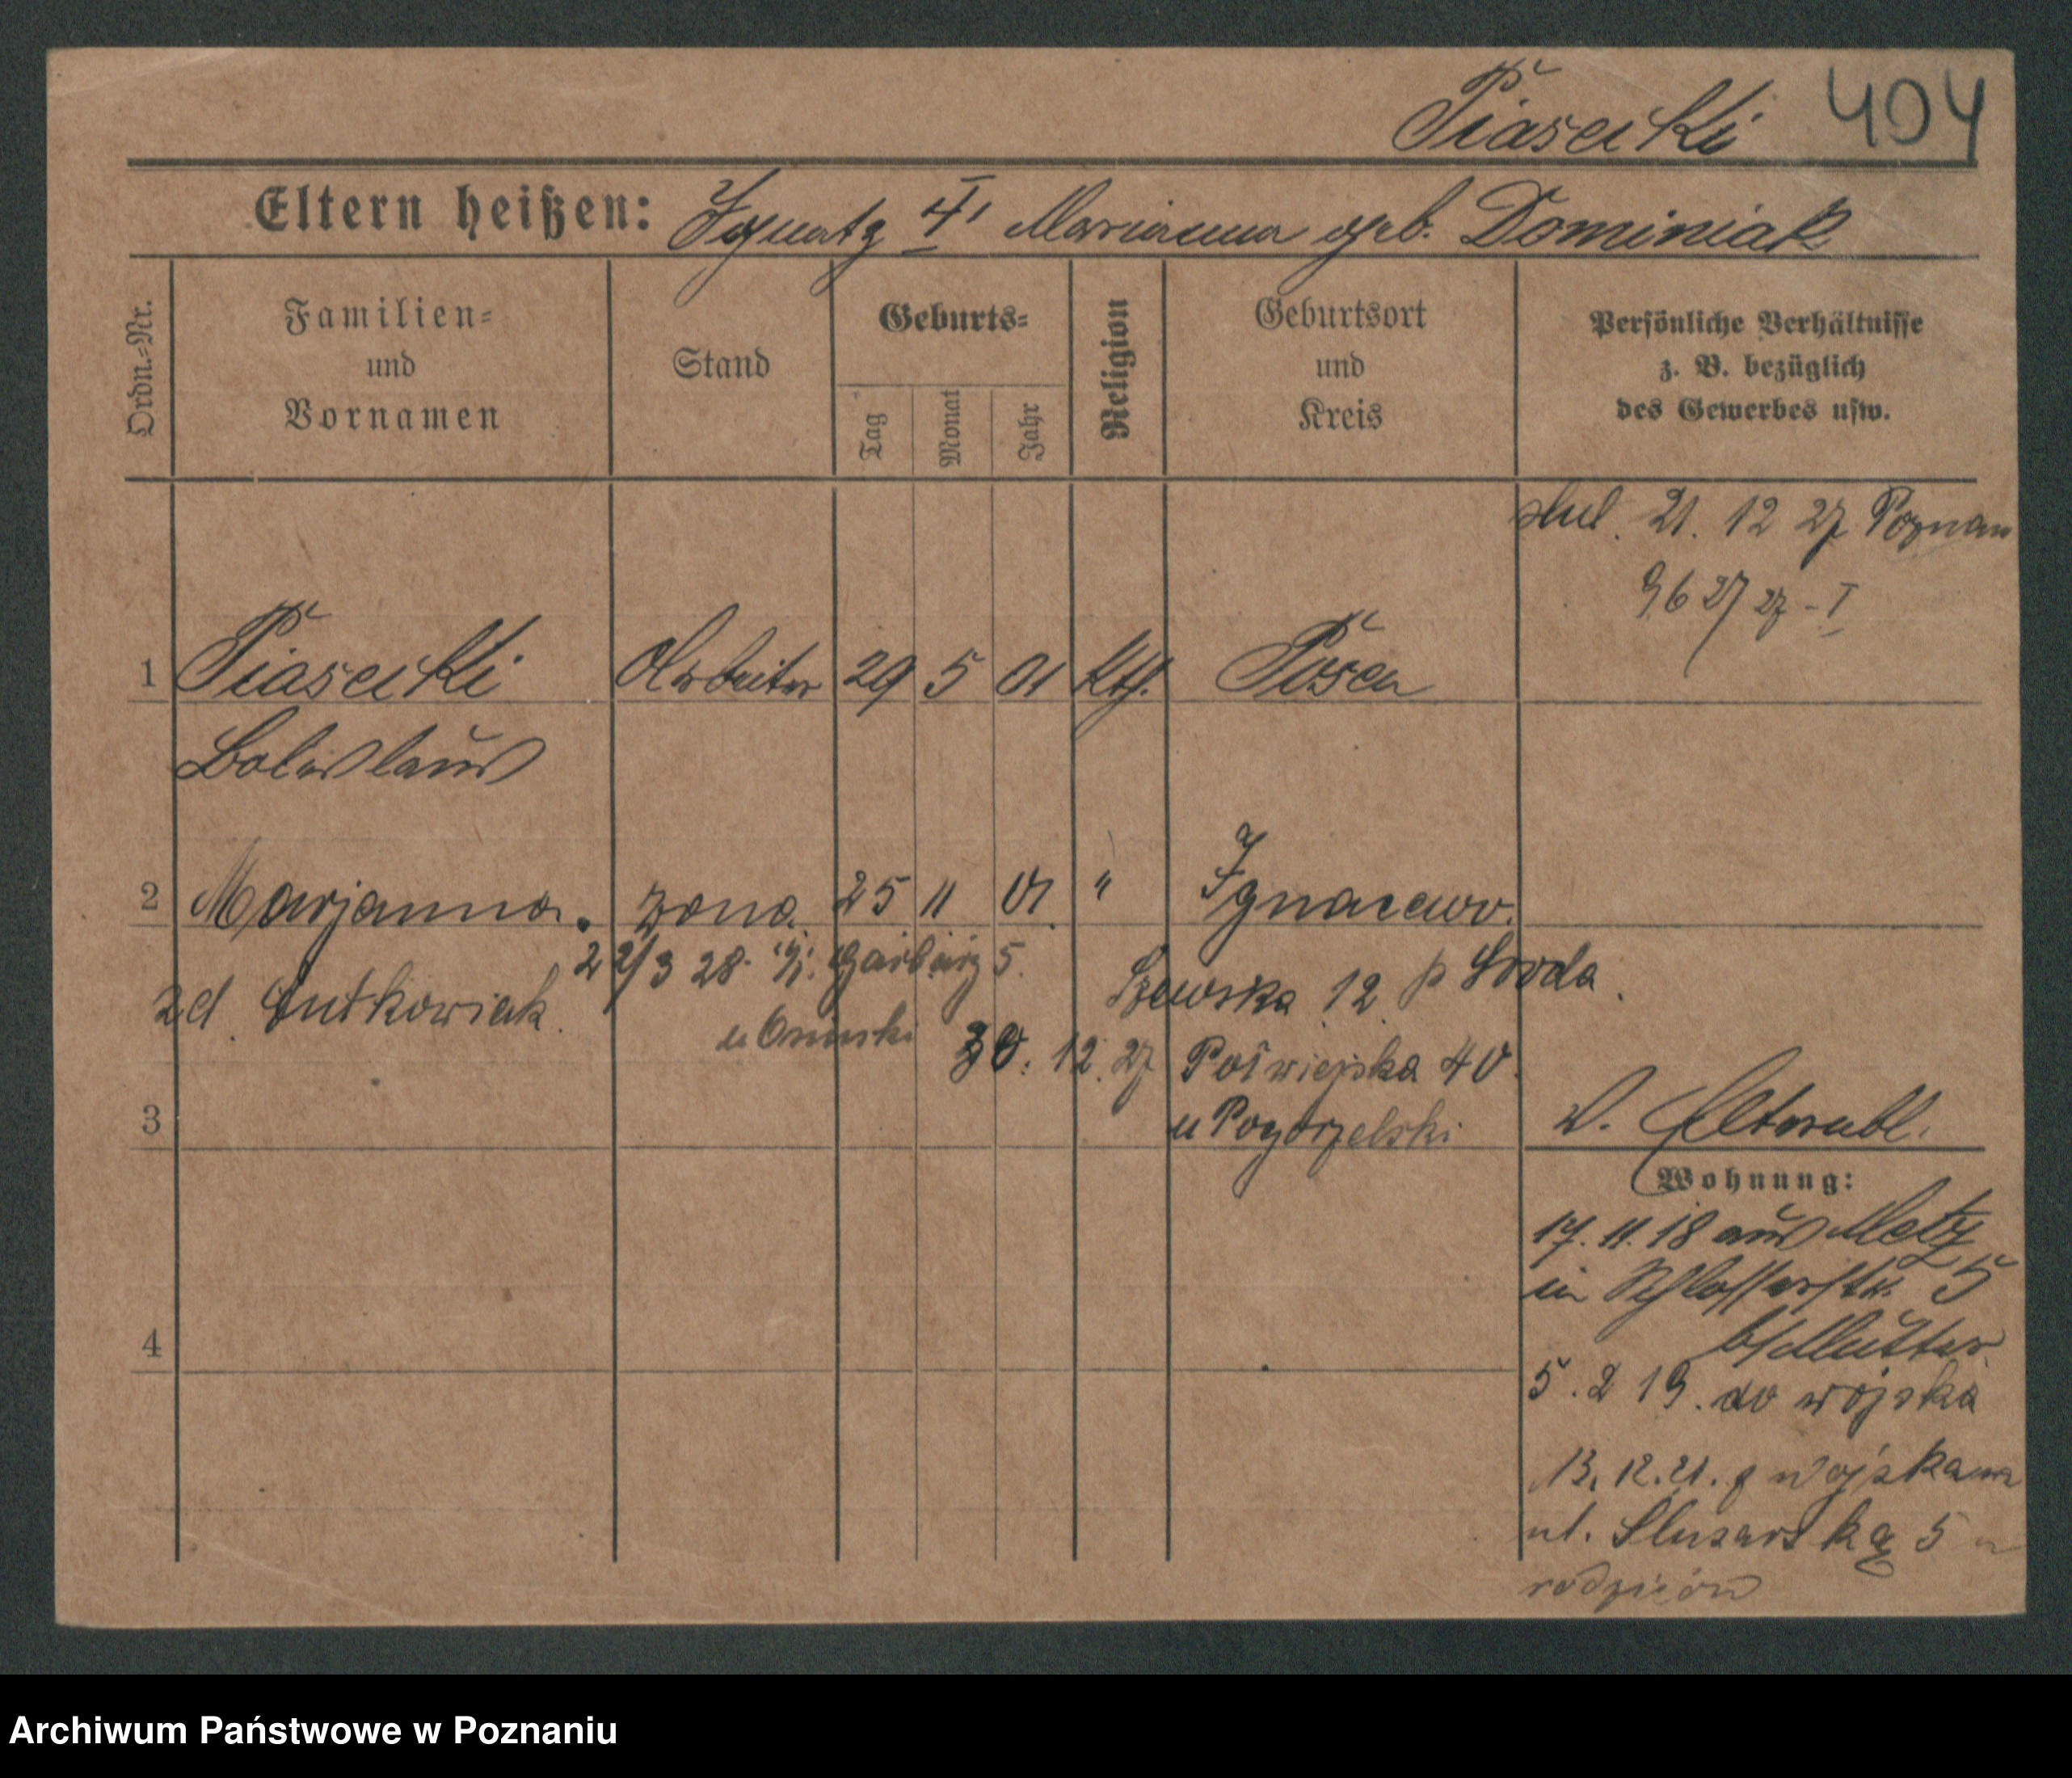 Piasecki 404
Eltern heißen: Ignatz Marianna geb. Dominiak
Ordn.=Nr.
Familien=
und
Vornamen
Stand
Geburts=
Tag
Monat
Jahr
Religion
Geburtsort
und
Kreis
Persönliche Verhältnisse
z. B. bezüglich
des Gewerbes usw.
21. 12 27 Poznan
1 Piasecki Arbeiter 29 5 01 kth. Posen
Boleslaus
2 Marjanna żona 25 11 01 " Ignacewo
p Środa
zd. Lutkowiak
28. Garbary 5.
u Osinski
Szewska 12
30. 12. 27 Półwiejska 40
u Pogorzelski
3
Wohnung:
17. 11. 18 aus Metz
in Schlosserstr. 5
b/Mutter
4
5. 2 19. do wojska
13. 12. 21. z wojska na
ul. Slusarską 5 u
rodziców
Archiwum Państwowe w Poznaniu